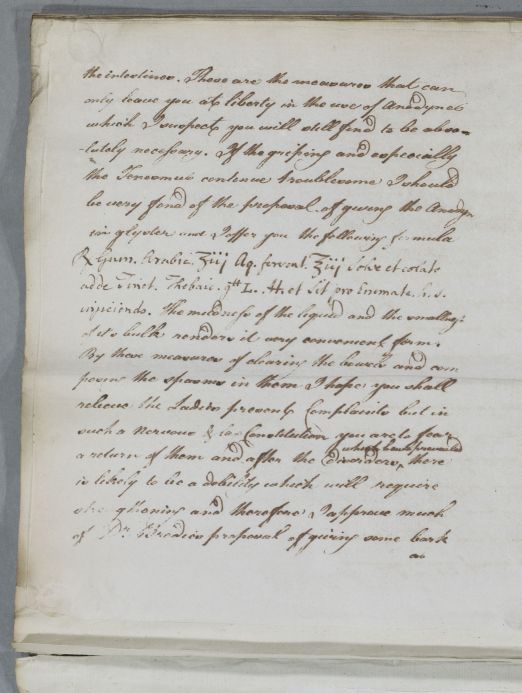 the intestines. These are the measures that can
only leave you at liberty in the use of Anodynes
which I suspect you will still find to be abso=
=lutely necessary. If the griping and especially
the Tenesmus continue troublesome I should
be very fond of the proposal of giving the Anodyn
in glyster and I offer you the following formula
℞ Gum. Arabic. ʒiij Aq. fervent. ℥iij Solve et colato
adde Tinct. Thebaic. gtt L. et sit pro Enemate. h. s.
injiciendo. The mildness of the liquid and the smallness
of its bulk renders it very convenient form.
By these measures of clearing the bowels and com
posing the spasms in them I hope you shall
relieve the Ladies present Complaints but in
such a Nervous & lax Constitution you are to fear
a return of them and after the disorders which have prevailed there
is likely to be a debility which will require
strengthening and therefore I approve much
of Dr. proposal of giving some bark
as